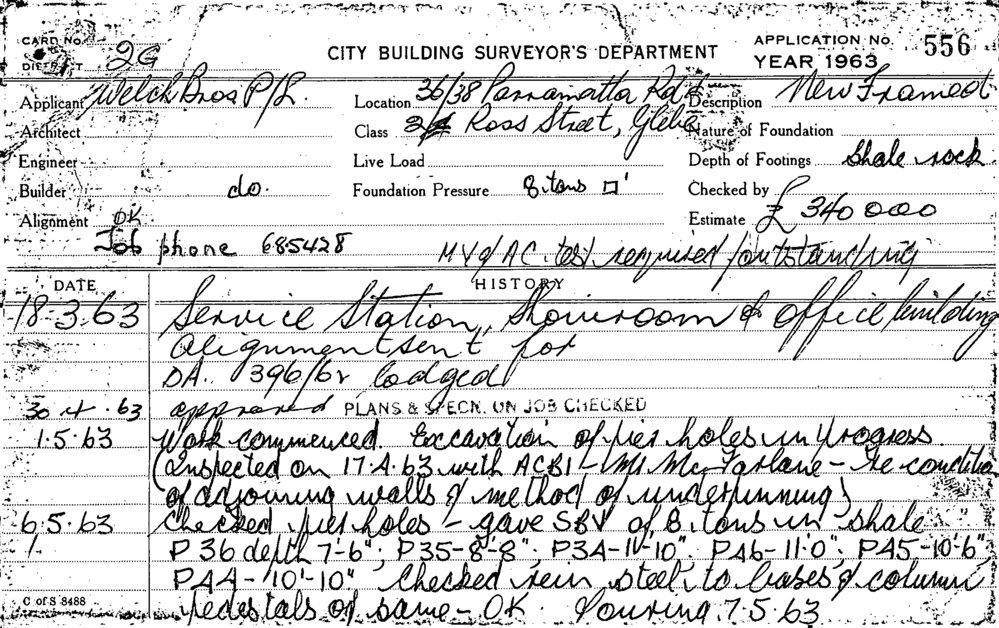 CARD No. 2G
DISTRICT
CITY BUILDING SURVEYOR'S DEPARTMENT
APPLICATION No. 556
YEAR 1963
Applicant Welch Bros P/L.
Location 36/38 Parramatta Rd &
Description New Framed
Architect
Class 2/4 Ross Street, Glebe
Nature of Foundation
Engineer
Live Load
Depth of Footings Shale rock
Builder do.
Foundation Pressure 8 tons □'
Checked by
Alignment OK
Estimate £ 340000
Job phone 685428
MV & AC test required / outstanding
DATE HISTORY
18-3-63 Service Station, Showroom & office building
Alignment sent for
DA. 396/62 lodged
30 4 .63 approved PLANS & SPECN. ON JOB CHECKED
1.5.63 Work commenced. Excavation of pier holes in progress.
(Inspected on 17.4.63 with ACBI - Mr McFarlane - re condition
of adjoining walls & method of underpinning)
6.5.63 Checked pier holes - gave SBV of 8 tons in shale
P36 depth 7-6"; P35-8'-8". P34-11'-10". P46-11-0"; P45-10-6"
P44-10'-10" Checked rein steel to bases & column
pedestals of same - OK Pouring 7.5.63
C of S 8488